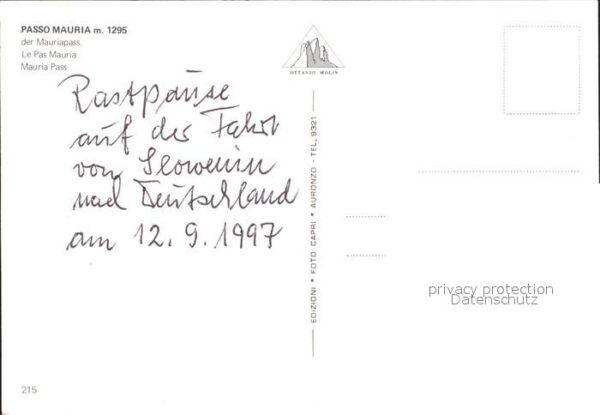 PASSO MAURIA m. 1295
der Mauriapass
Le Pas Mauria
Mauria Pass
OTTAVIO MOLIN
Rastpause
auf der Fahrt
von Slowenin
nach Deutschland
am 12.9.1997
EDIZIONI * FOTO CAPRI * AURONZO - TEL. 9321
privacy protection
Datenschutz
215